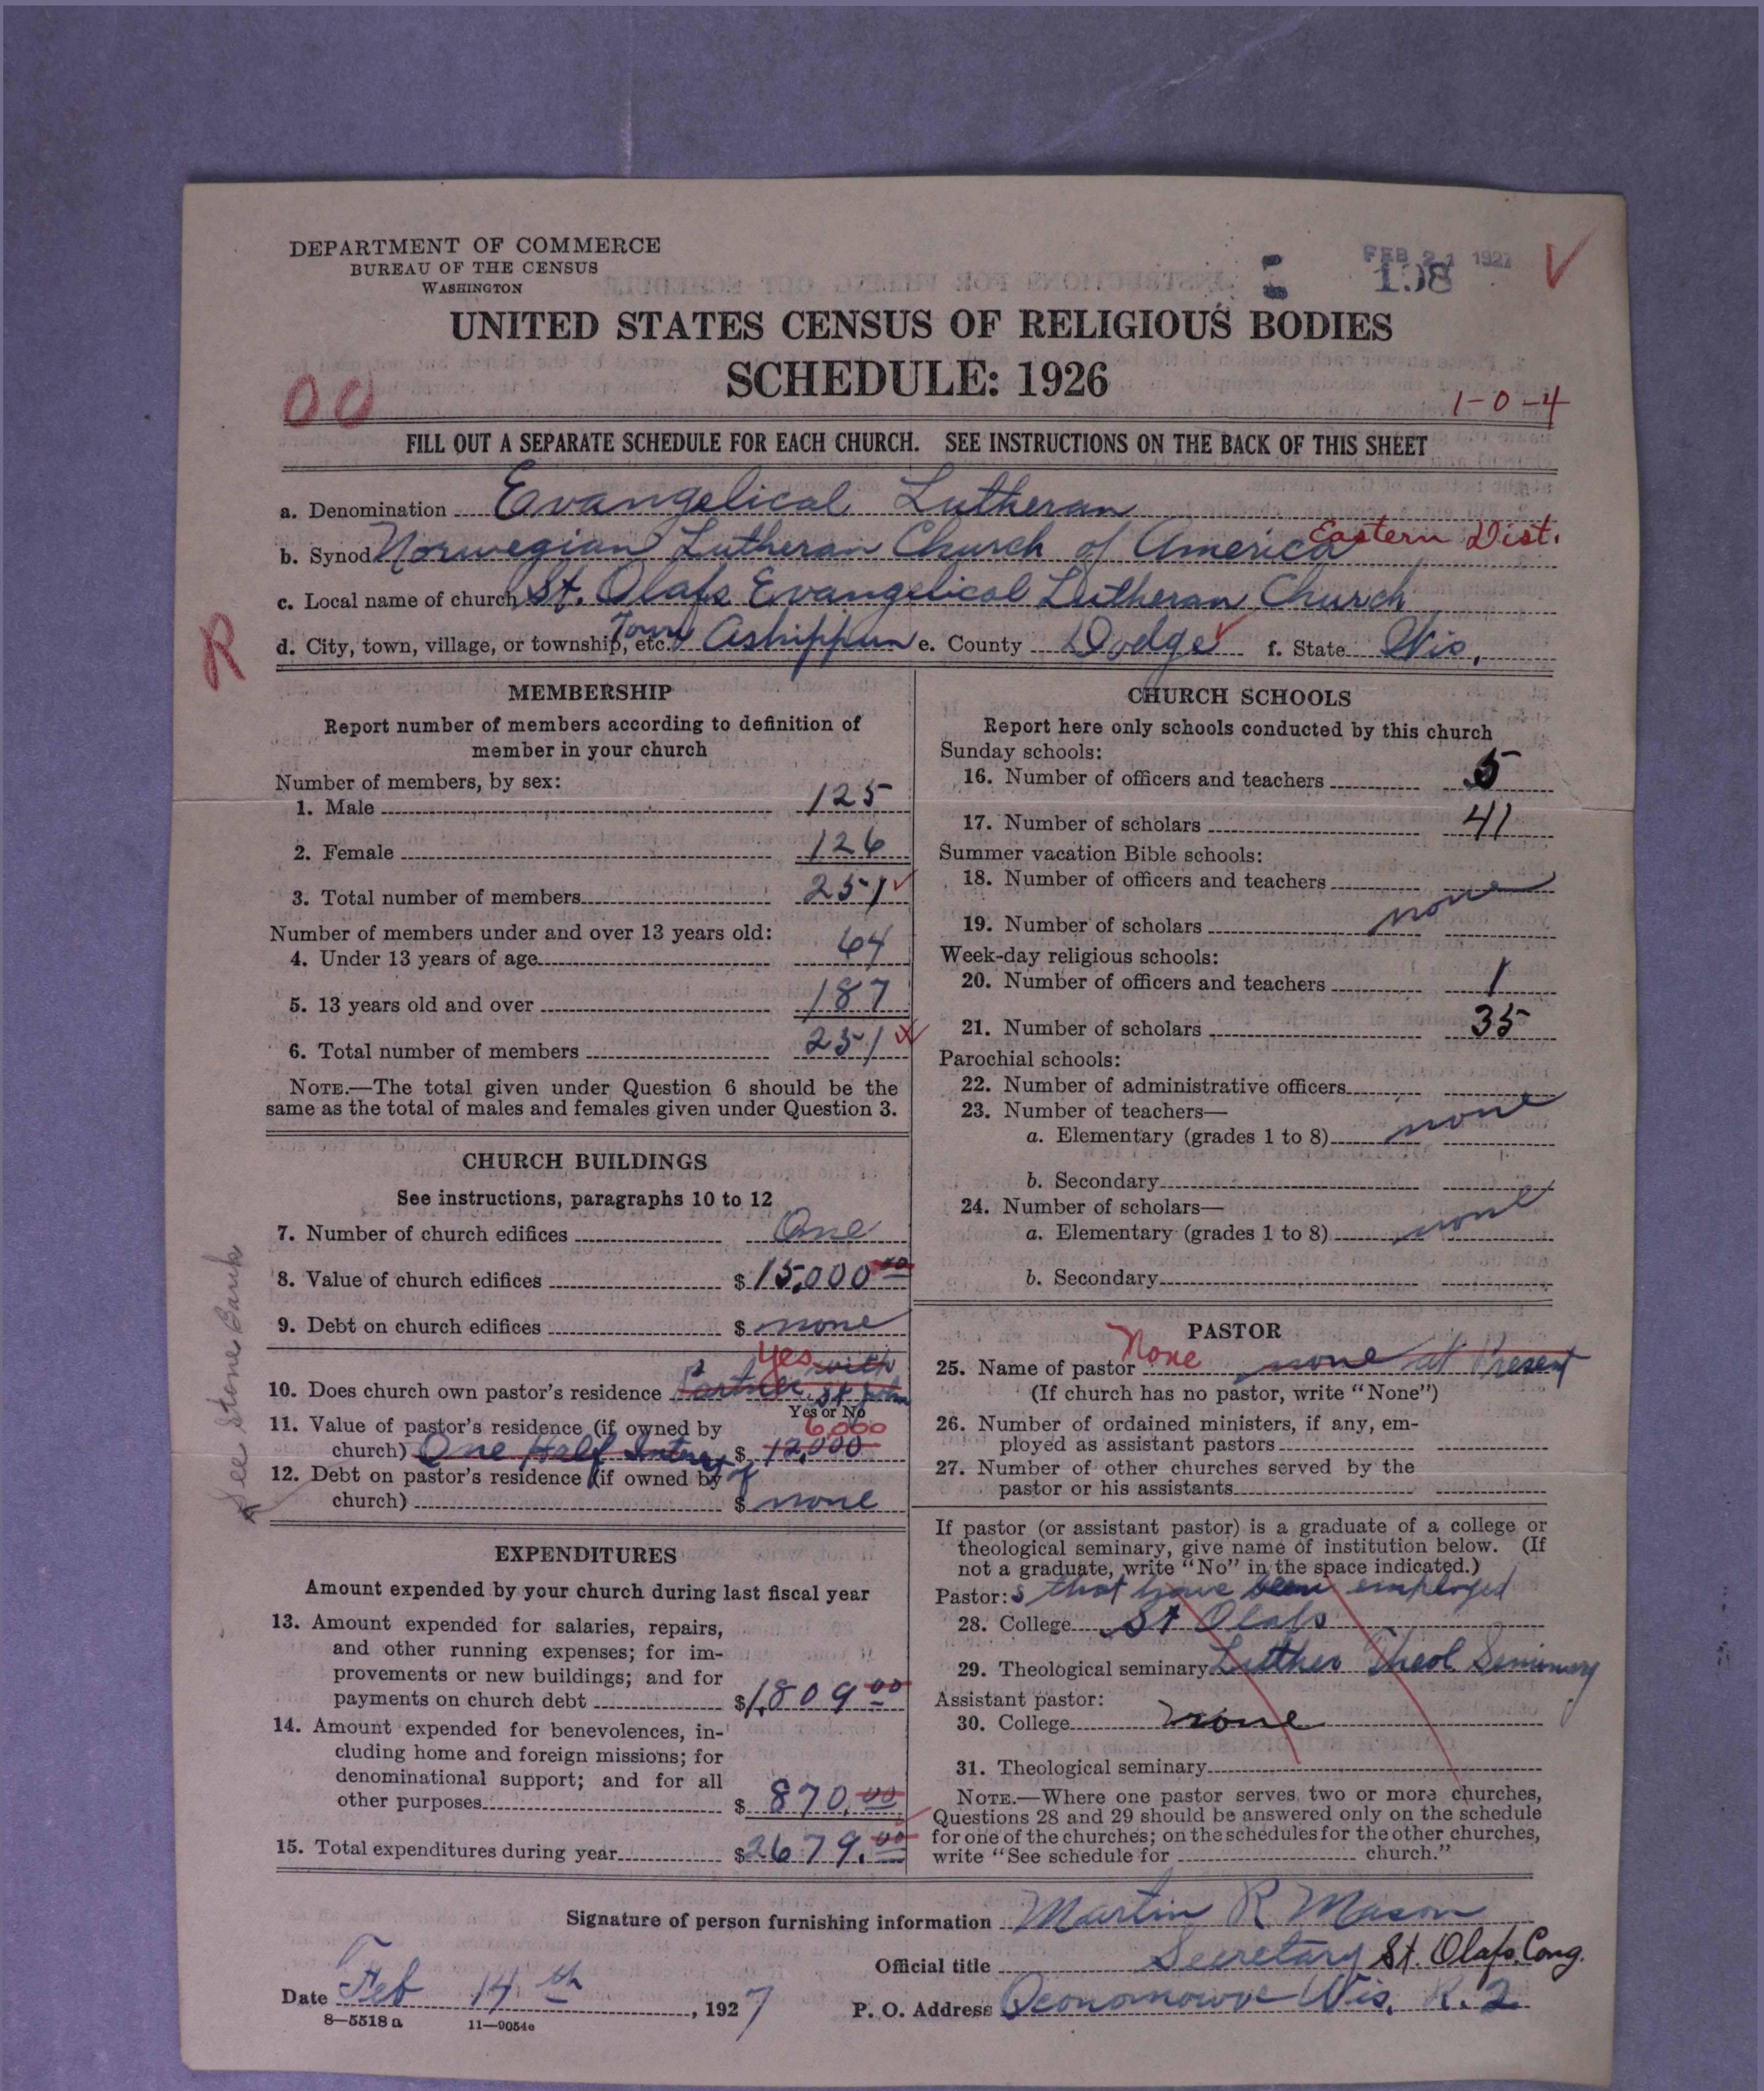 DEPARTMENT OF COMMERCE
BUREAU OF THE CENSUS
WASHINGTON
FEB 21 1927
198
UNITED STATES CENSUS OF RELIGIOUS BODIES
SCHEDULE: 1926
00
1-0-4
FILL OUT A SEPARATE SCHEDULE FOR EACH CHURCH. SEE INSTRUCTIONS ON THE BACK OF THIS SHEET
a. Denomination Evangelical Lutheran
b. Synod Norwegian Lutheran Church of America Eastern Dist.
c. Local name of church St. Olafs Evangelical Lutheran Church
R
d. City, town, village, or township, etc. Town Ashippun e. County Dodge f. State Wis.
MEMBERSHIP
Report number of members according to definition of
member in your church
Number of members, by sex:
1. Male 125
2. Female 126
3. Total number of members 251
Number of members under and over 13 years old:
4. Under 13 years of age 64
5. 13 years old and over 187
6. Total number of members 251
NOTE.—The total given under Question 6 should be the
same as the total of males and females given under Question 3.
CHURCH BUILDINGS
See instructions, paragraphs 10 to 12
7. Number of church edifices One
8. Value of church edifices $15,000 00
9. Debt on church edifices $ none
Yes with
10. Does church own pastor's residence Partner St John
Yes or No
11. Value of pastor's residence (if owned by 6,000
church) One Half Intrest $ 12,000
12. Debt on pastor's residence (if owned by of
church) $ none
See Stone Bank
EXPENDITURES
Amount expended by your church during last fiscal year
13. Amount expended for salaries, repairs,
and other running expenses; for im-
provements or new buildings; and for
payments on church debt $1,809 00
14. Amount expended for benevolences, in-
cluding home and foreign missions; for
denominational support; and for all
other purposes $ 870.00
15. Total expenditures during year $2679.00
CHURCH SCHOOLS
Report here only schools conducted by this church
Sunday schools:
16. Number of officers and teachers 5
17. Number of scholars 41
Summer vacation Bible schools:
18. Number of officers and teachers
19. Number of scholars none
Week-day religious schools:
20. Number of officers and teachers 1
21. Number of scholars 35
Parochial schools:
22. Number of administrative officers
23. Number of teachers—
a. Elementary (grades 1 to 8) none
b. Secondary
24. Number of scholars—
a. Elementary (grades 1 to 8) none
b. Secondary
PASTOR
25. Name of pastor None none at Present
(If church has no pastor, write "None")
26. Number of ordained ministers, if any, em-
ployed as assistant pastors
27. Number of other churches served by the
pastor or his assistants
If pastor (or assistant pastor) is a graduate of a college or
theological seminary, give name of institution below. (If
not a graduate, write "No" in the space indicated.)
Pastor: s that have been employed
28. College St Olafs
29. Theological seminary Luther Theol Seminary
Assistant pastor:
30. College none
31. Theological seminary
NOTE.—Where one pastor serves two or more churches,
Questions 28 and 29 should be answered only on the schedule
for one of the churches; on the schedules for the other churches,
write "See schedule for church."
Signature of person furnishing information Martin R Mason
Official title Secretary St. Olafs Cong.
Date Feb 14th, 1927
P. O. Address Oconomowoc Wis. R. 2
8—5518 a 11—9054e